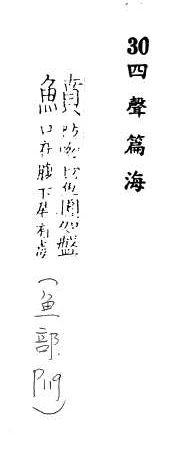 30四聲篇海
鱝
防吻切魚圓如盤
口在腹下尾有毒
(魚部P119)